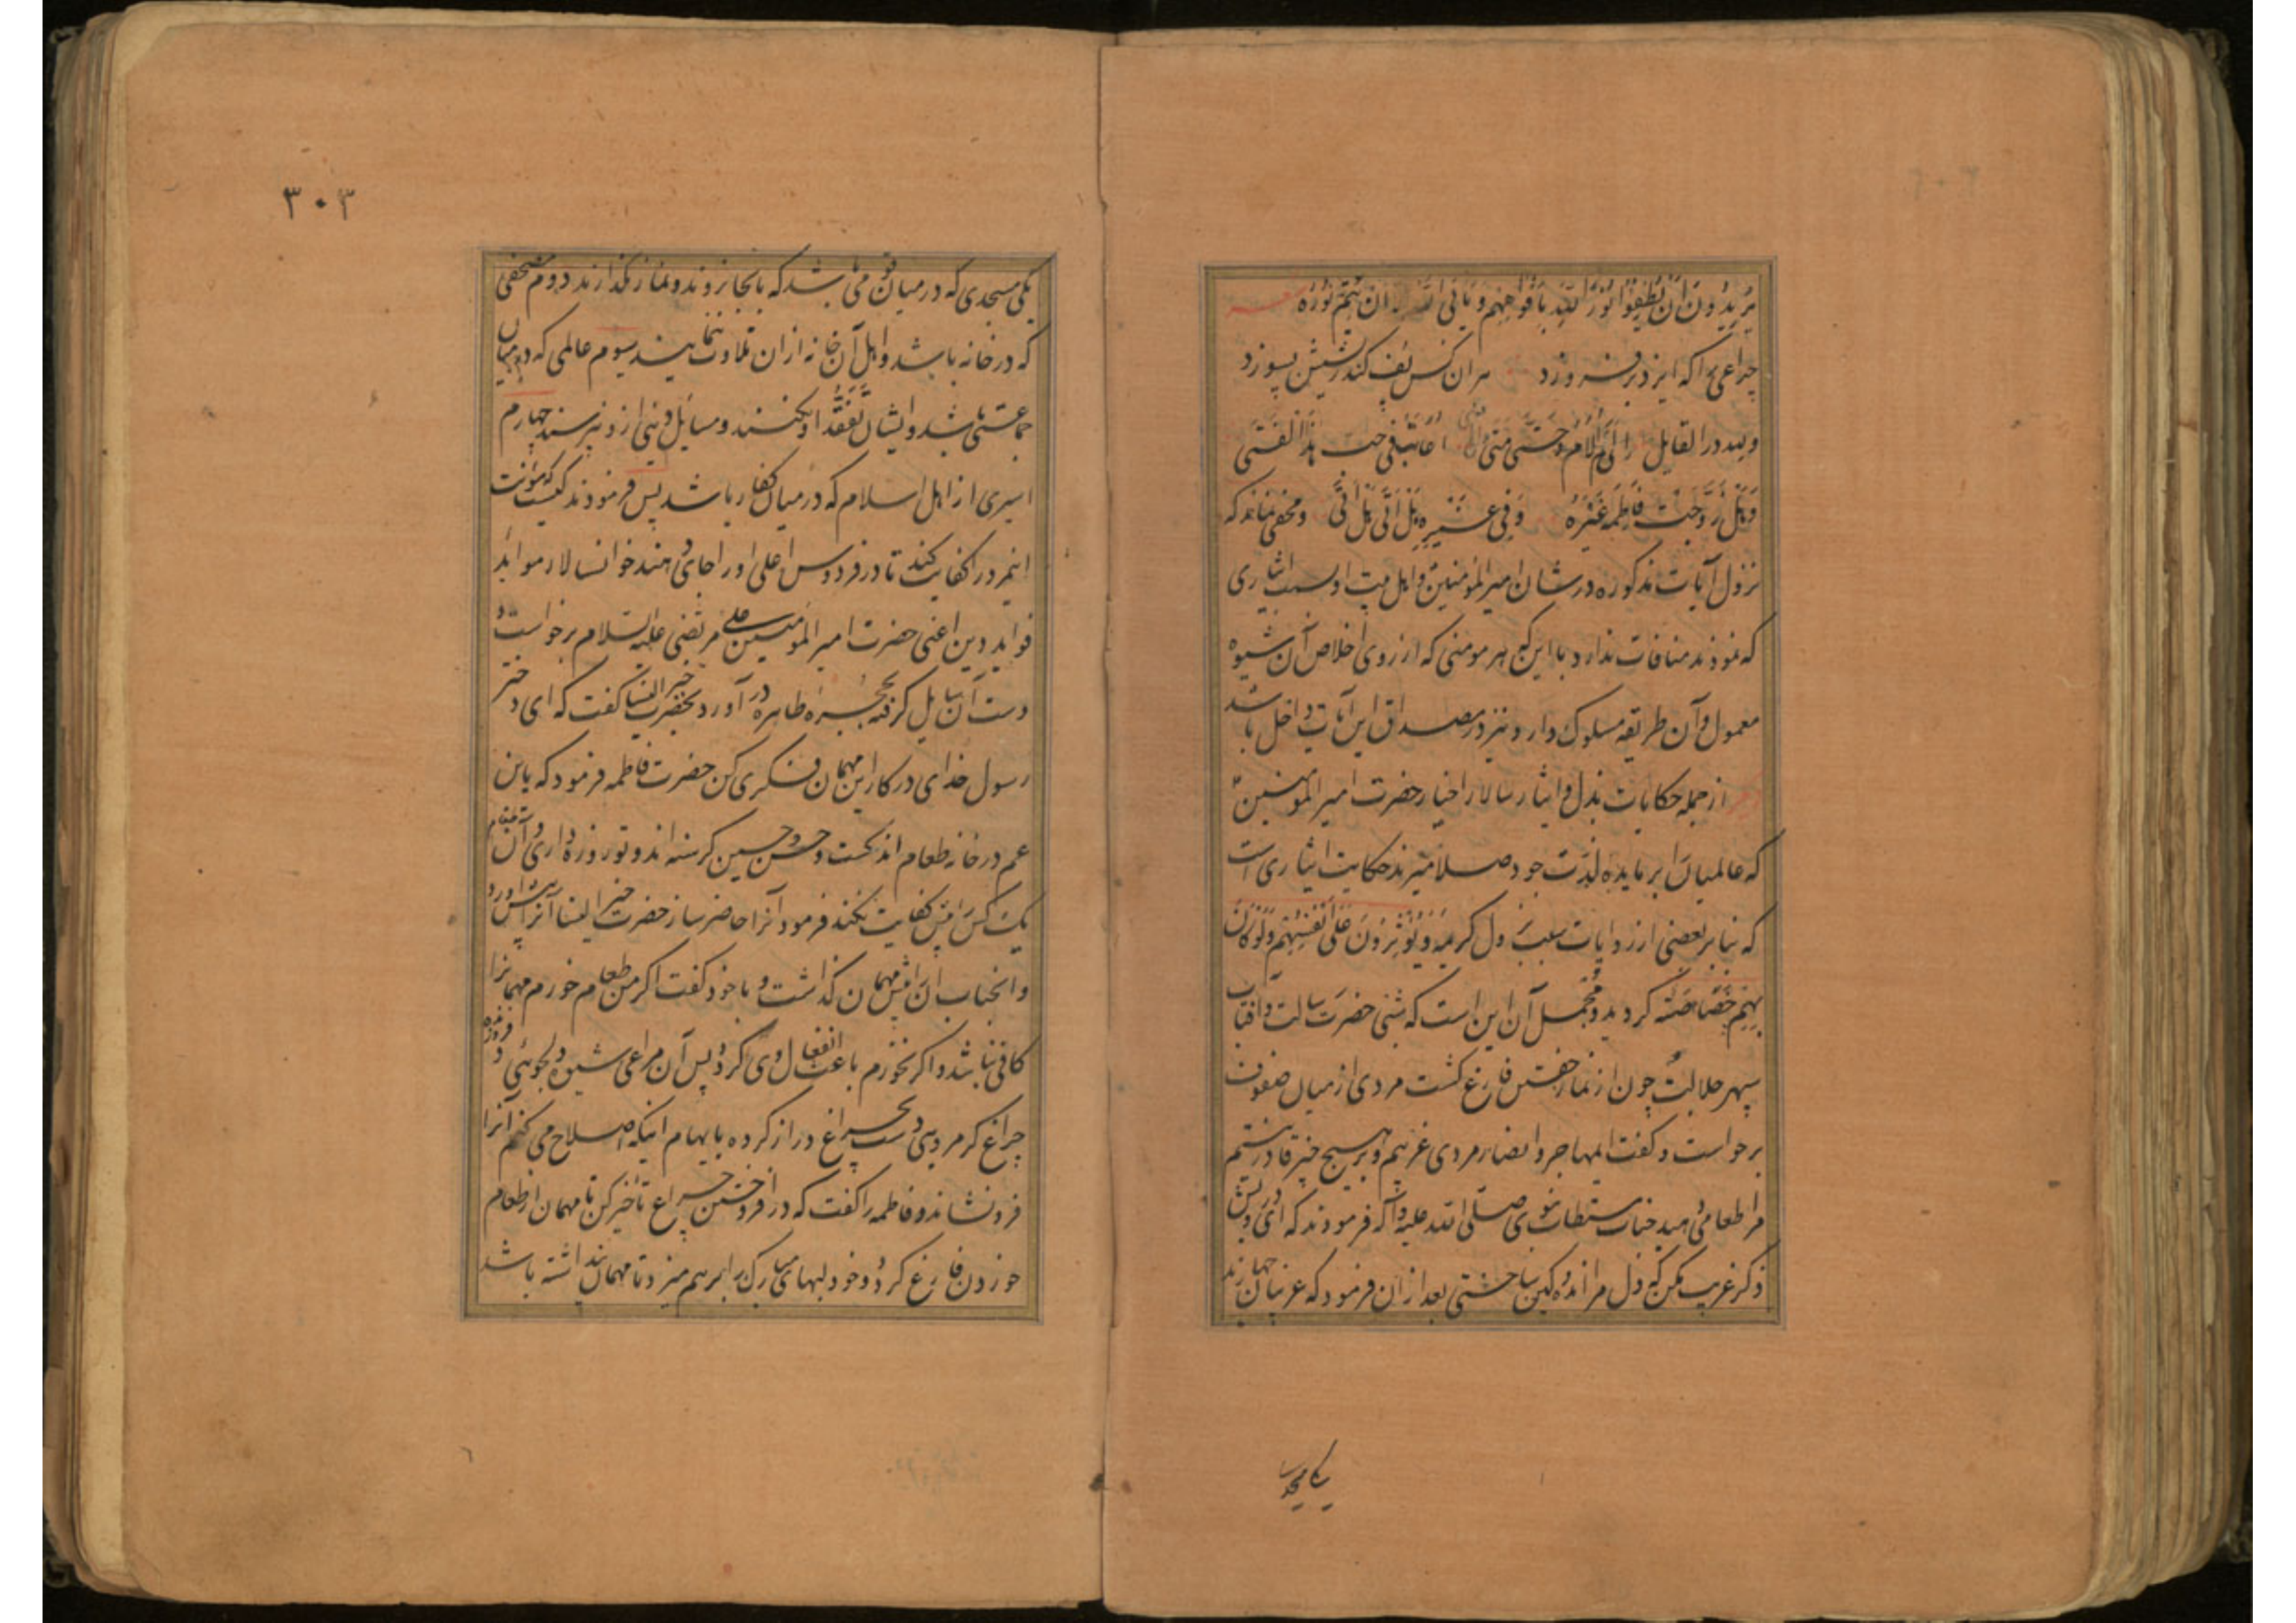 یریدون ان یطفؤا نور الله بافواههم و یأبی الله ان یتم نوره شعر
چراغی را که ایزد برفروزد هر ان کس پف کند ریشش بسوزد
ولله در القایل الی م الام و حتی متی اعاتب فی حب هذا الفتی
و هل زوجت فاطمه غیره و فی غیره هل اتی هل اتی و مخفی نماند که
نزول آیات مذکوره در شان امیر المؤمنین و اهل بیت او بسبب ایثاری
که نمودند منافات ندارد با این که هر مومنی که از روی اخلاص آن شیوه
معمول و آن طریقه مسلوک دارد نیز در مصداق این آیات داخل باشد
از جمله حکایات بذل و ایثار سالار اخیار حضرت امیر المومنین
که عالمیان بر مایده لذت جود صلا میزند حکایت ایثاری است
که بنا بر بعضی از روایات سبب نزول کریمه و یؤثرون علی انفسهم ولو کان
بهم خصاصته کردید و مجمل آن این است که شبی حضرت رسالت و آفتاب
سپهر جلالت چون از نماز خفتن فارغ کشت مردی از میان صفوف
برخواست و کفت ایمهاجر و انصار مردی غریبم و بر هیچ چیز قادر نیستم
مرا طعامی دهید جناب مستطاب نبوی صلی الله علیه و آله فرمودند که ای درویش
ذکر غریب مکن که دل مرا اندوهکین ساختی بعد از آن فرمود که غریبان چهارند
یکی مسجدی
۳۰۳
یکی مسجدی که در میان قومی باشد که بانجا نروند و نماز نکذارند دوم مصحفی
که در خانه باشد و اهل آن خانه از ان تلاوت ننمایند سیوم عالمی که در میان
جماعتی باشد و ایشان تفقد او نکنند و مسایل دینی از و نپرسند چهارم
اسیری از اهل اسلام که در میان کفار باشد پس فرمودند کیست که مؤنت
اینمرد را کفایت کند تا در فردوس اعلی او را جای دهند خوانسالار موائد
فواید دین اعنی حضرت امیر المومنین علی مرتضی علیه السلام برخواست و
دست آن سایل کرفته بحجره طاهره در آورد بحضرت خیر النسا کفت که ای دختر
رسول خدای در کار این مهمان فکری کن حضرت فاطمه فرمود که یا بن
عم در خانه طعام اندکست و حسن و حسین کرسنه اند و تو روزه داری و آن طعام
یک کس را بیش کفایت نکند فرمود آنرا حاضر ساز حضرت خیر النسا آنرا پیش آورد
و انجناب ان را پیش مهمان کذاشت و با خود کفت اکر من طعام خورم مهمانرا
کافی نباشد و اکر نخورم باعث انفعال وی کردد پس آن مراعی شیوه دلجوئی و فروزنده
چراغ کرم مردمی دست بچراغ دراز کرده بایهام اینکه اصلاح می کنم آنرا
فرونشاند و فاطمه را کفت که در افروختن چراغ تاخیر کن تا مهمان از طعام
خوردن فارغ کردد و خود لبهای مبارک را بر هم میزد تا مهمان نداشته باشد